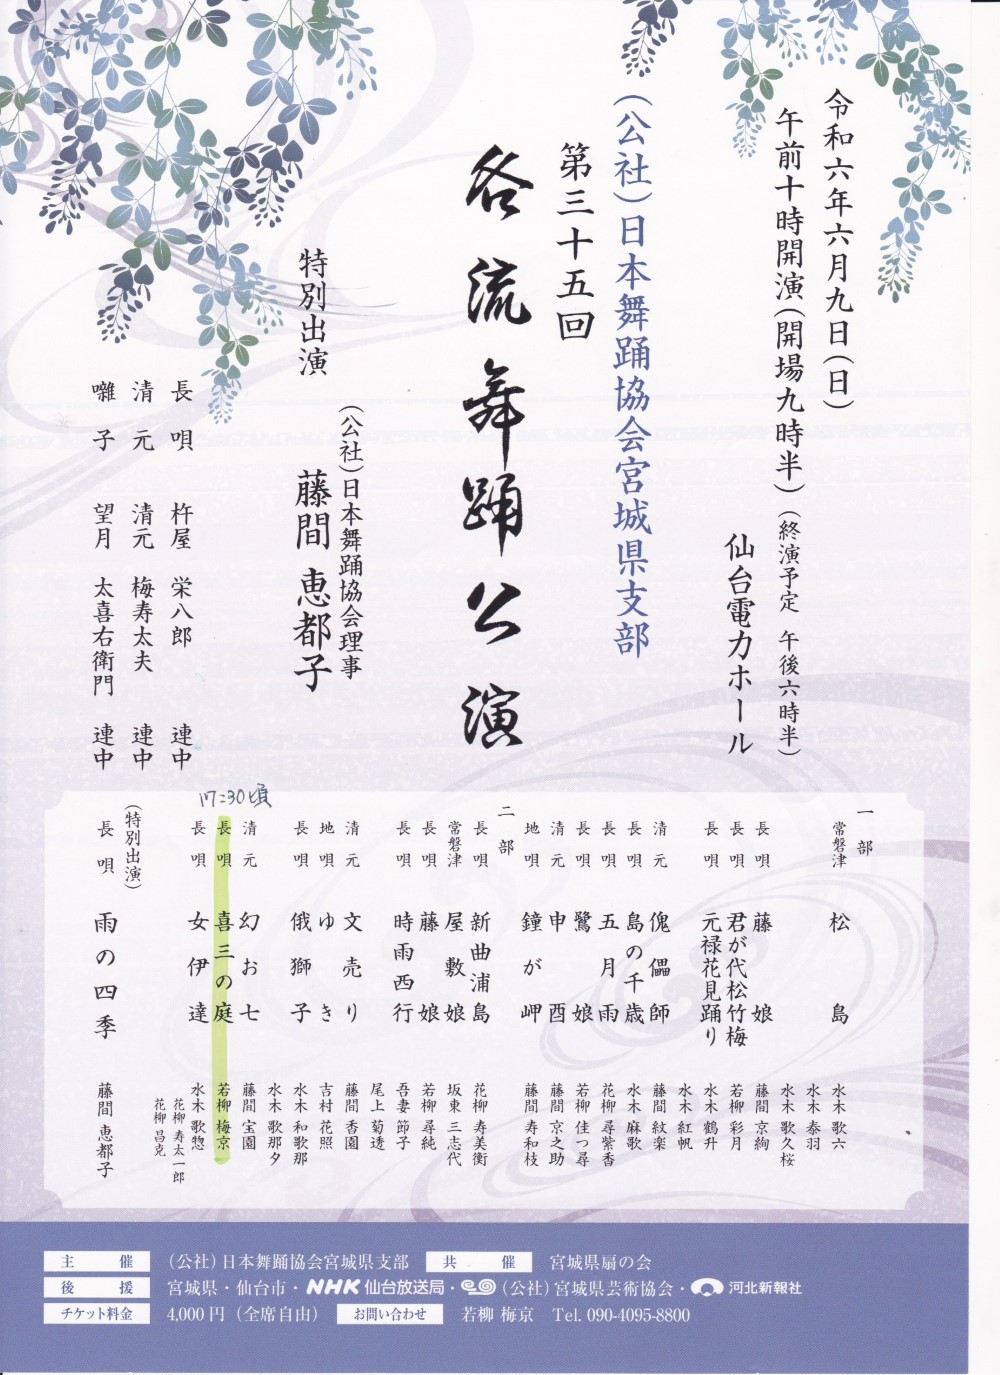 令和六年六月九日(日)
午前十時開演(開場九時半)(終演予定 午後六時半)
仙台電力ホール
(公社)日本舞踊協会宮城県支部
第三十五回
各流舞踊公演
特別出演
(公社)日本舞踊協会理事
藤間 恵都子
長唄 杵屋 栄八郎 連中
清元 清元 梅寿太夫 連中
囃子 望月 太喜右衛門 連中
一部
常磐津 松島 水木 歌六
水木 泰羽
水木 歌久桜
長唄 藤娘 藤間 京絢
長唄 君が代松竹梅 若柳 彩月
長唄 元禄花見踊り 水木 鶴升
水木 紅帆
清元 傀儡師 藤間 紋楽
長唄 島の千歳 水木 麻歌
長唄 五月雨 花柳 尋紫香
長唄 鷺娘 若柳 佳つ尋
清元 申酉 藤間 京之助
地唄 鐘が岬 藤間 寿和枝
二部
長唄 新曲浦島 花柳 寿美衡
常磐津 屋敷娘 坂東 三志代
長唄 藤娘 若柳 尋純
長唄 時雨西行 吾妻 節子
尾上 菊透
清元 文売り 藤間 香園
地唄 ゆき 吉村 花照
長唄 俄獅子 水木 和歌那
水木 歌那夕
清元 幻お七 藤間 宝園
17:30頃
長唄 喜三の庭 若柳 梅京
長唄 女伊達 水木 歌惣
花柳 寿太一郎
花柳 昌克
(特別出演)
長唄 雨の四季 藤間 恵都子
主催 (公社)日本舞踊協会宮城県支部 共催 宮城県扇の会
後援 宮城県・仙台市・NHK仙台放送局・(公社)宮城県芸術協会・河北新報社
チケット料金 4,000円(全席自由) お問い合わせ 若柳 梅京 Tel. 090-4095-8800